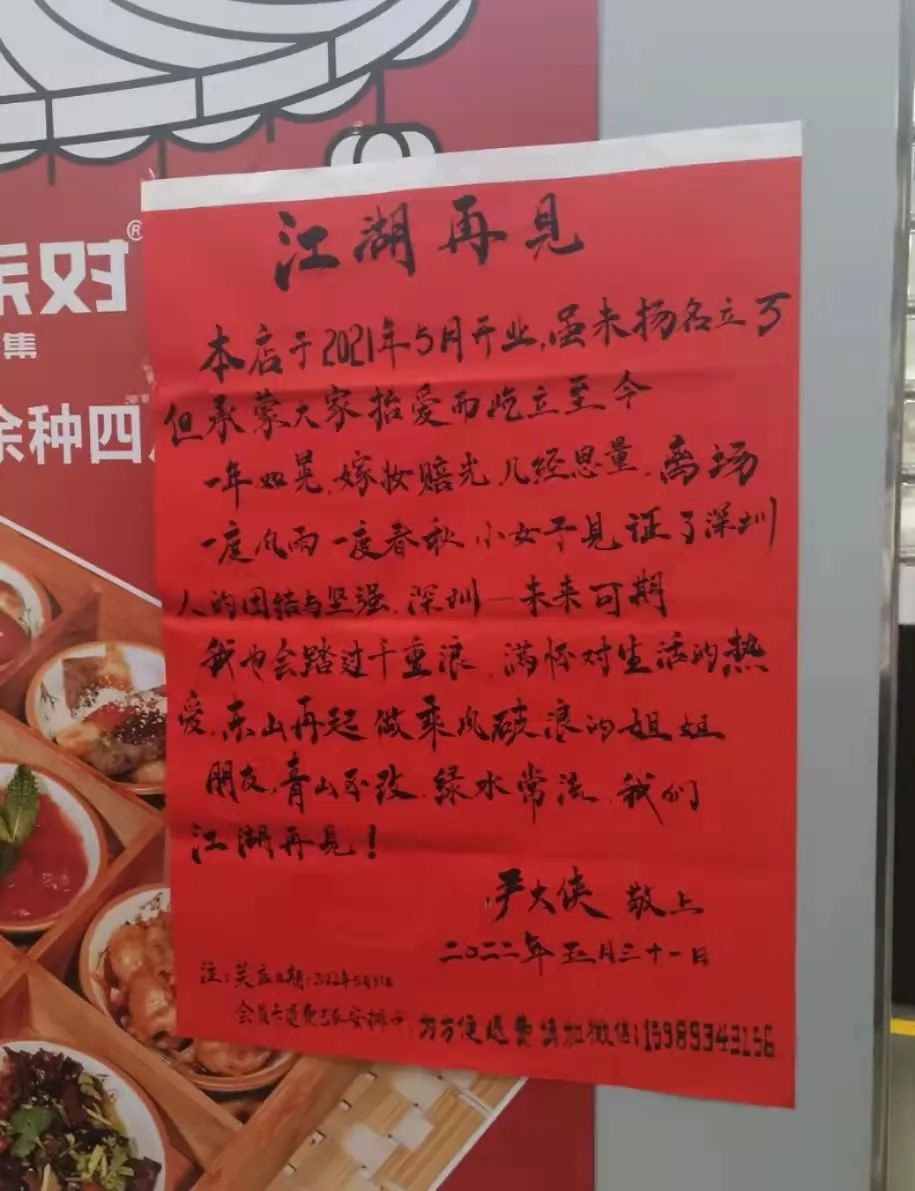 江湖再见
本店于2021年5月开业,虽未扬名立万
但承蒙大家抬爱而屹立至今
一年如晃,嫁妆赔光,几经思量,离场
一度风雨一度春秋小女子见证了深圳
人的团结与坚强,深圳—未来可期
我也会踏过千重浪,满怀对生活的热
爱,东山再起做乘风破浪的姐姐
朋友,青山不改,绿水常流,我们
江湖再见!
严大侠 敬上
二〇二二年五月三十一日
注:关店日期:2022年5月31日
会员卡退费已在安排子,为方便退费请加微信:15989343156
对®
集
余种四